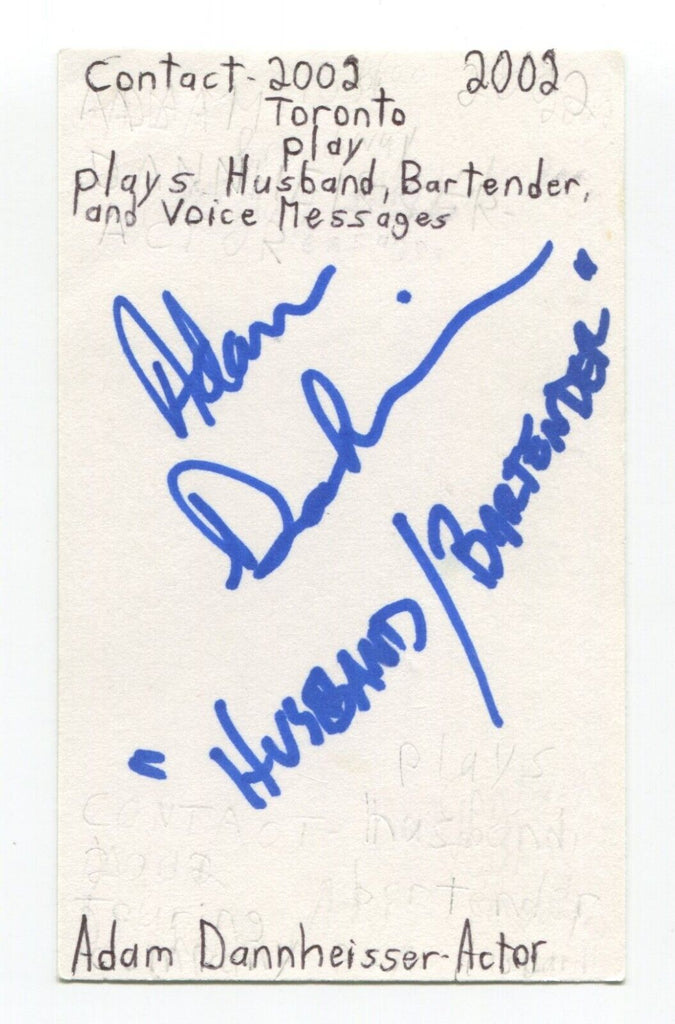 Contact-2002 2002
Toronto
play
plays Husband, Bartender,
and Voice Messages
Adam
"HUSBAND/BARTENDER"
plays
CONTACT- Husband
Adam Dannheisser-Actor